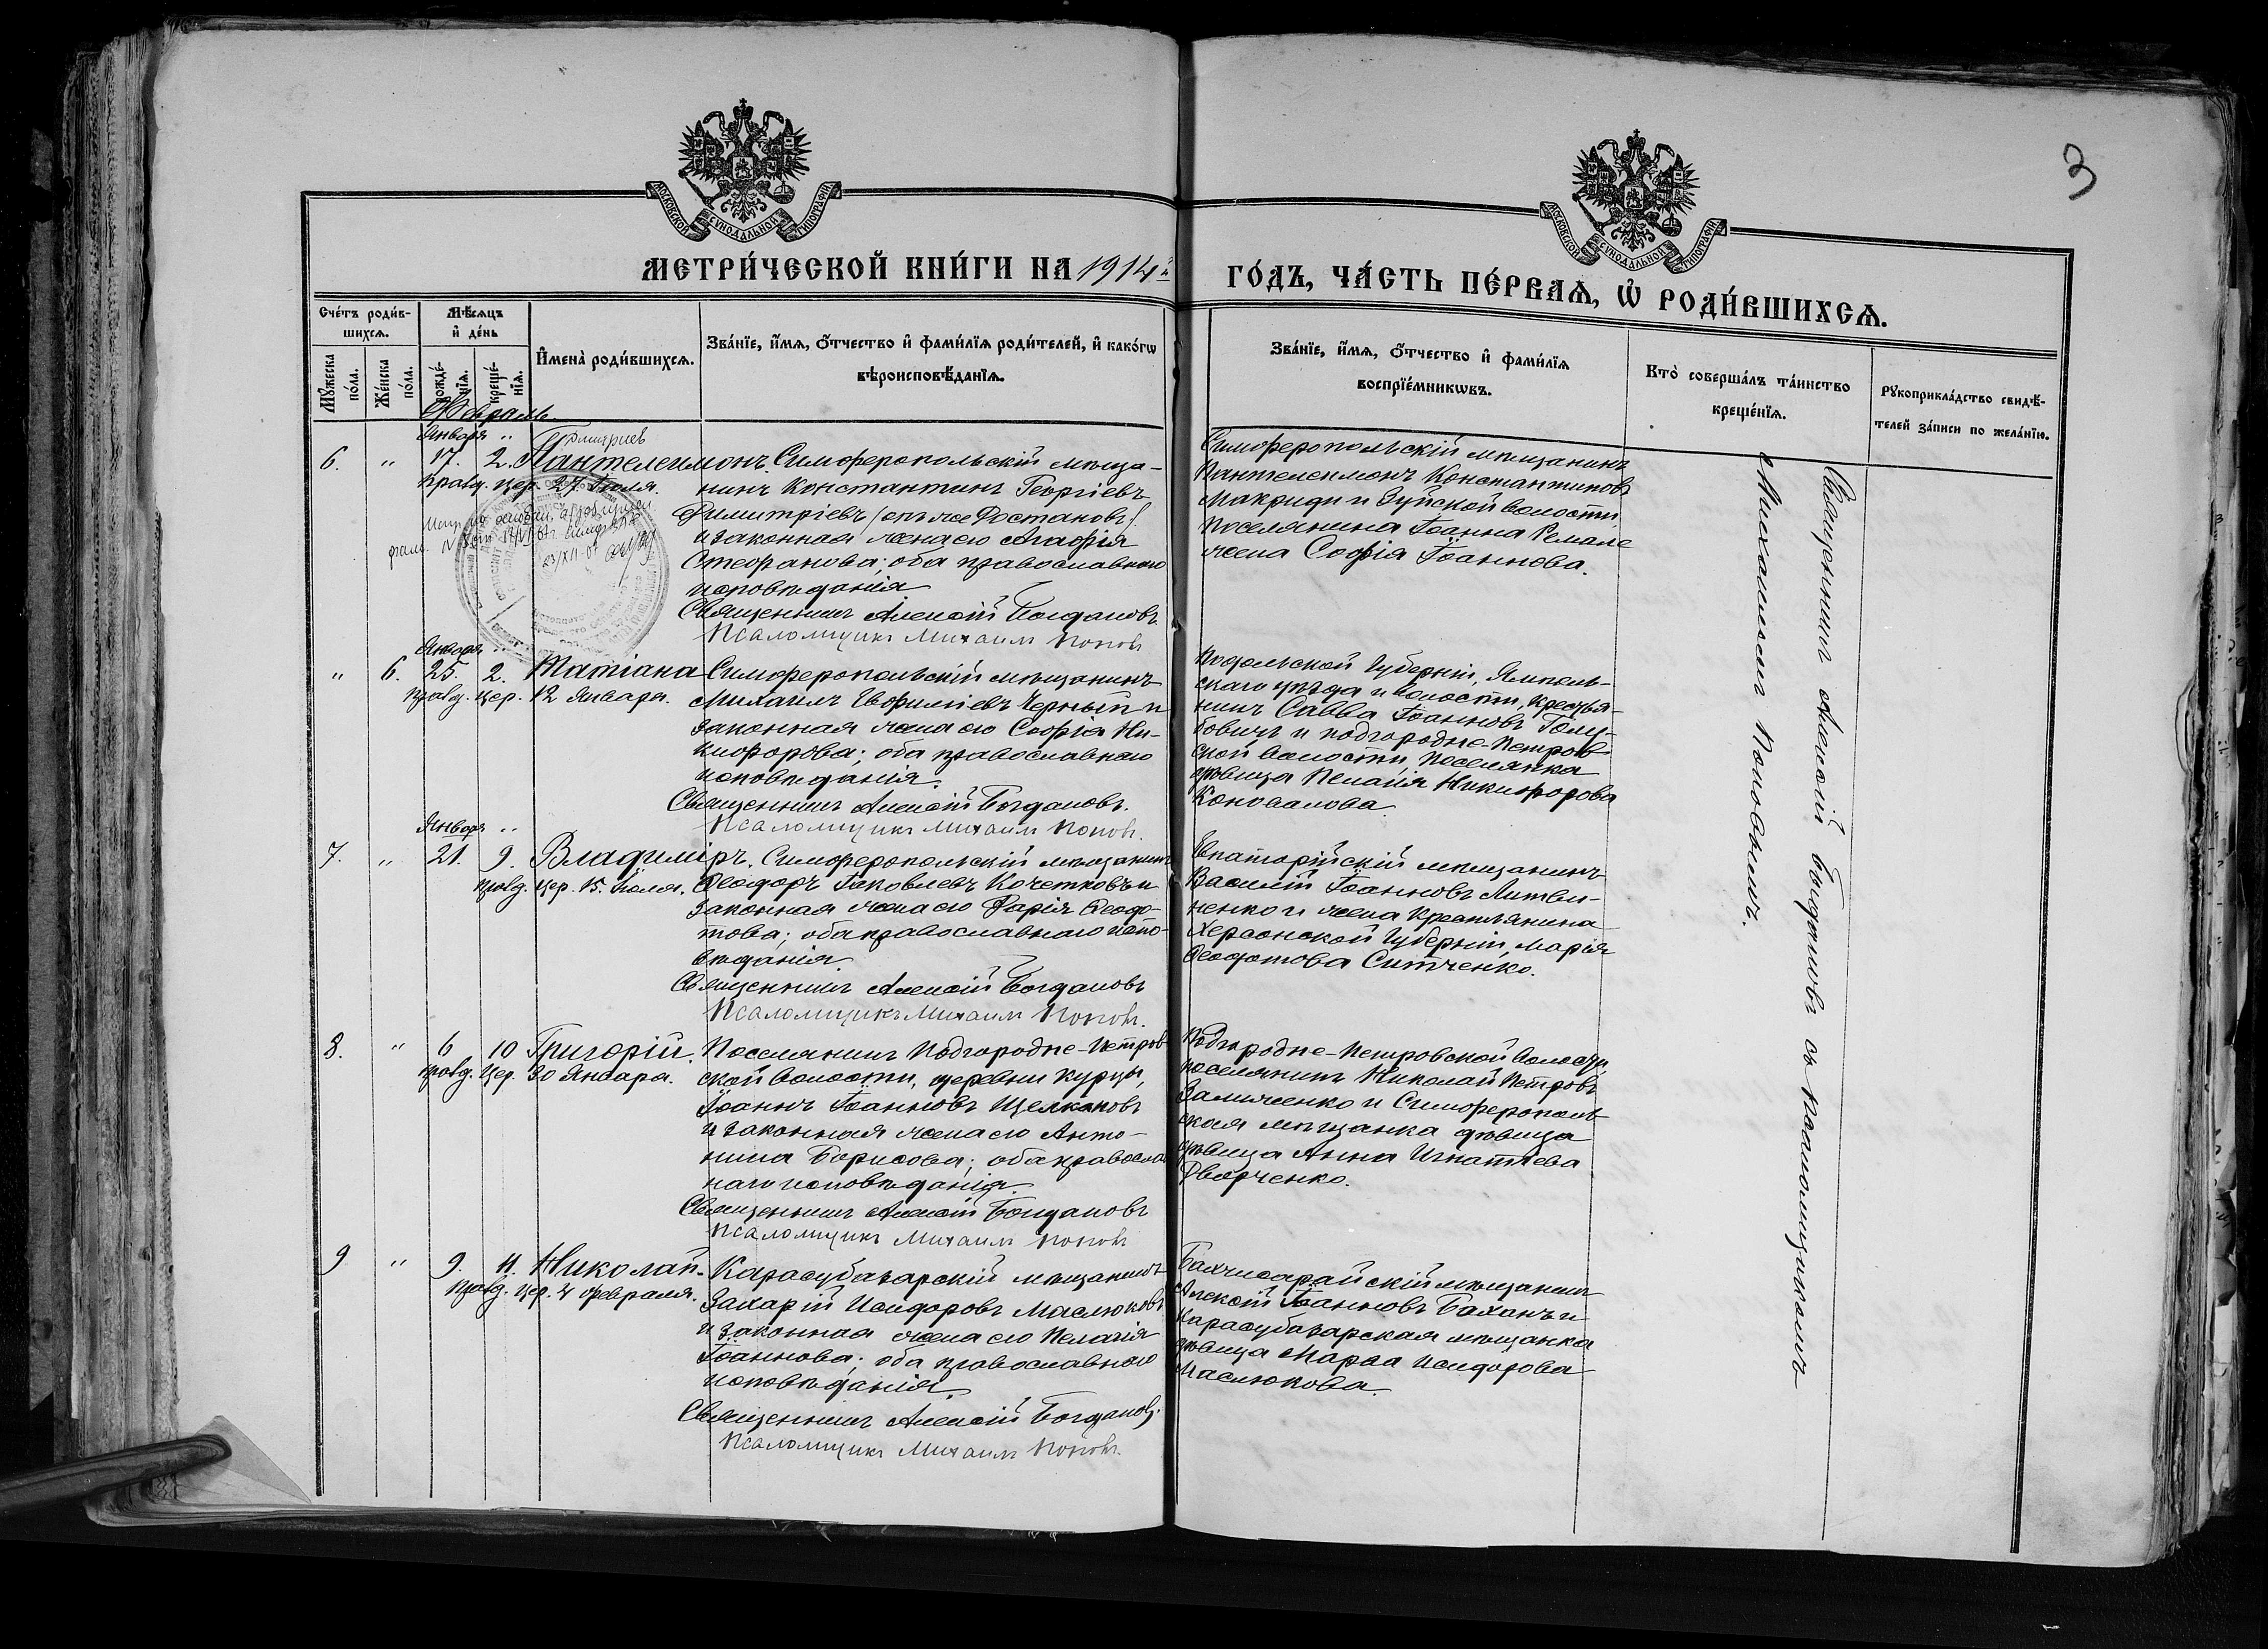 3
МОСКОВСКОЙ СѴНОДАЛЬНОЙ ТИПОГРАФІИ
МОСКОВСКОЙ СѴНОДАЛЬНОЙ ТИПОГРАФІИ
МЕТРИ́ЧЕСКОЙ КНИ́ГИ НА 1914й ГО́ДЪ, ЧА́СТЬ ПЕ́РВАѦ, Ѡ҆ РОДИ́ВШИХСѦ.
Сче́тъ роди́в-
шихсѧ.
Мꙋ́жеска по́ла.
Же́нска по́ла.
Мѣ́сѧцъ
и҆ де́нь
рожде́-
нїѧ.
креще́-
нїѧ.
И҆мена̀ роди́вшихсѧ.
Зва́нїе, и҆́мѧ, ѻ҆́тчество и҆ фами́лїѧ роди́телей, и҆ како́гѡ
вѣроисповѣ́данїѧ.
Зва́нїе, и҆́мѧ, ѻ҆́тчество и҆ фами́лїѧ
воспрїе́мникѡвъ.
Кто̀ соверша́лъ та́инство
креще́нїѧ.
Рꙋкоприкла́дство свидѣ́-
телей за́писи по жела́нїю.
Февраль
Января "
Дмитриев
6. " 17. 2. Пантелеимонъ.
Празд. цер. 27 Іюля.
Симферопольскій мѣща-
нинъ Константинъ Георгіевъ
Димитріевъ (онъ же Ростановъ)
и законная жена его Агафія
Стефанова; оба православнаго
исповѣданія
Священникъ Алексій Богдановъ.
Псаломщикъ Михаилъ Поповъ
Симферопольскій мѣщанинъ
Пантелеимонъ Константиновъ
Макриди и Зуйской волости
поселянина Іоанна
жена Софія Іоаннова.
Января "
" 6. 25. 2. Татіана
празд. цер. 12 Января.
Симферопольскій мѣщанинъ
Михаилъ Евфиміевъ Черный и
законная жена его Софія Ни-
кифорова; оба православнаго
исповѣданія.
Священникъ Алексій Богдановъ.
Псаломщикъ Михаилъ Поповъ.
Подольской губерніи, Ямполь-
скаго уѣзда и волости, крестья-
нинъ Савва Іоанновъ Голу-
бовичъ и Подгородне-Петров-
ской волости, поселянка
дѣвица Пелагія Никифорова
Коновалова.
Января "
7. " 21. 9. Владиміръ.
празд. цер. 15. Іюля.
Симферопольскій мѣщанинъ
Ѳеодоръ Іаковлевъ Кочетковъ и
законная жена его Дарія Ѳеодо-
това; оба православнаго испо-
вѣданія.
Священникъ Алексій Богдановъ
Псаломщикъ Михаилъ Поповъ.
Евпаторійскій мѣщанинъ
Василій Іоанновъ Литви-
ненко и жена крестьянина
Херсонской губерніи, Марія
Ѳеодотова Ситченко.
8. " 6 10 Григорій.
празд. цер. 30 Января.
Поселянинъ Подгородне-Петров-
ской волости, деревни Курцы,
Іоаннъ Іоанновъ Щелкановъ
и законная жена его Анто-
нина Борисова; оба православ-
наго исповѣданія.
Священникъ Алексій Богдановъ
Псаломщикъ Михаилъ Поповъ
Подгородне-Петровской волости,
поселянинъ Николай Петровъ
и Симферополь-
ская мѣщанка дѣвица
дѣвица Анна Игнатіева
Дварченко.
9 " 9. 11. Николай.
празд. цер. 4 февраля.
Карасубазарскій мѣщанинъ
Захарій Исидоровъ Маслюковъ
и законная жена его Пелагія
Іоаннова; оба православнаго
исповѣданія.
Священникъ Алексій Богдановъ.
Псаломщикъ Михаилъ Поповъ.
Бахчисарайскій мѣщанинъ
Алексій Іоанновъ Баханъ и
Карасубазарская мѣщанка
дѣвица Марѳа Исидорова
Маслюкова.
Священникъ Алексій Богдановъ съ псаломщикомъ
Михаиломъ Поповымъ.